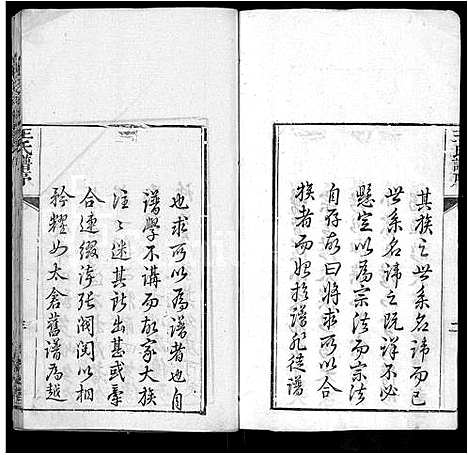 其族之世系名諱而已
世系名諱之既詳不必
懸定以為宗法而宗法
自存故曰將求以合
族者而始於譜非徒譜
也求所以為譜者也自
譜學不講而故家大族
注〻迷其所出甚或牽
合連綴誇張閥閱以相
矜耀如太倉舊譜為越
王氏譜序
王氏譜序
二
三